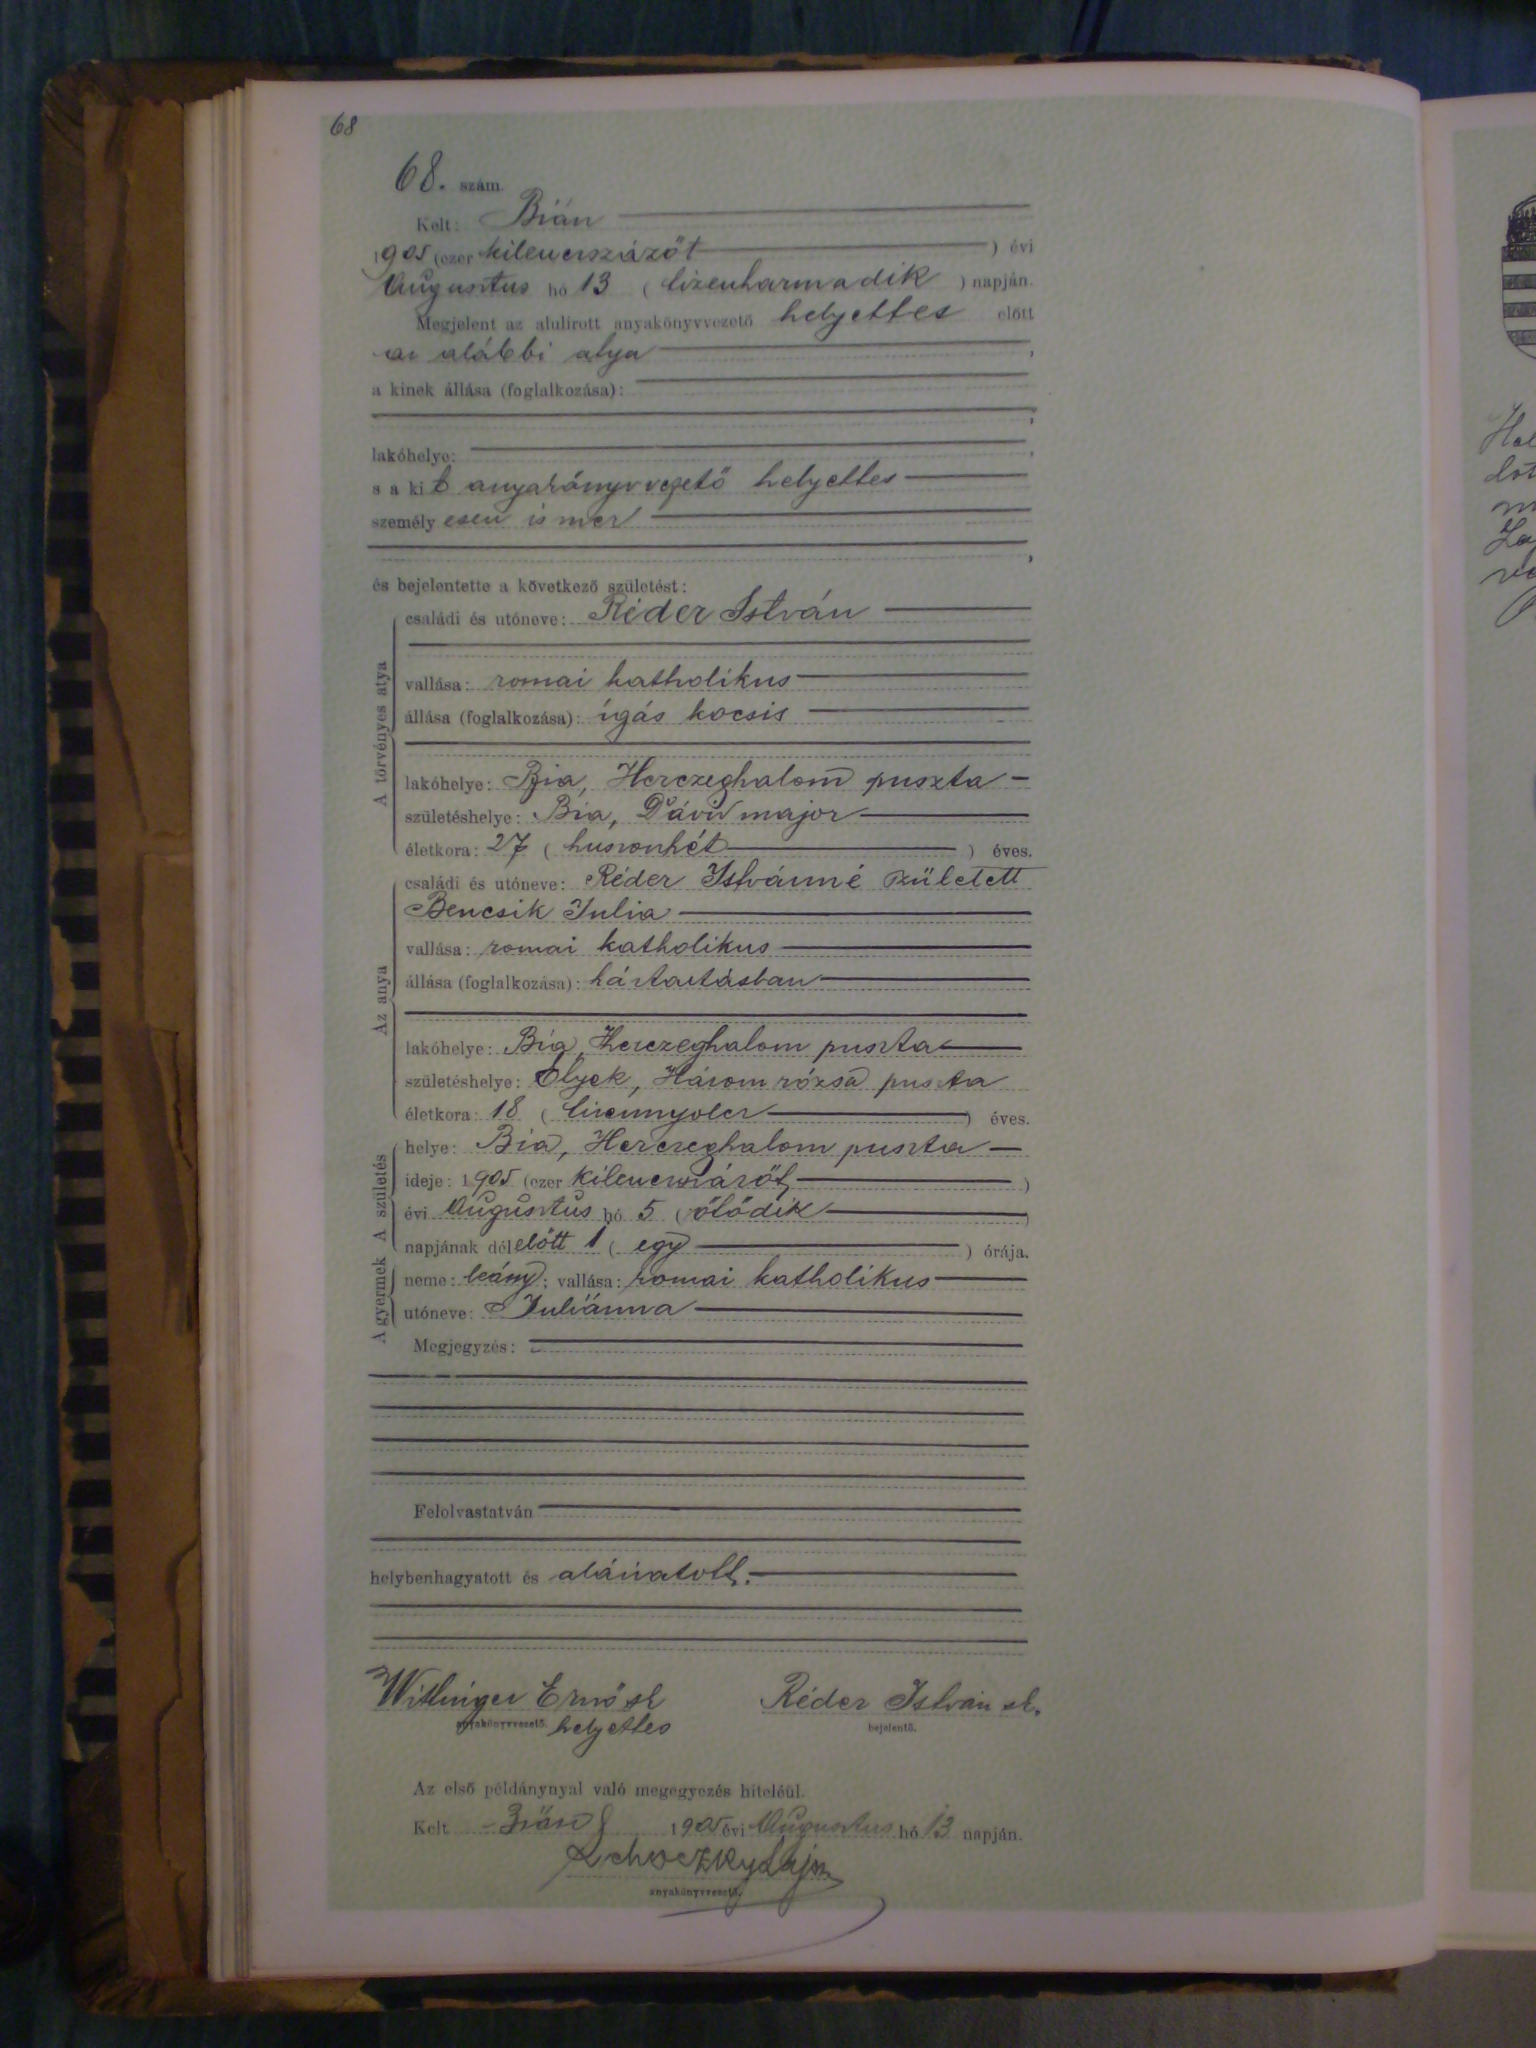 68
68. szám.
Kelt: Bián
1905 (ezer kilenczszázöt ) évi
Augusztus hó 13 ( tizenharmadik ) napján.
Megjelent az alulirott anyakönyvvezető helyettes előtt
az alábbi atya ,
a kinek állása (foglalkozása):
;
lakóhelye: ,
s a kit anyakönyvvezető helyettes
személyesen ismer
,
és bejelentette a következő születést:
A törvényes atya
családi és utóneve: Réder István
vallása: romai katholikus
állása (foglalkozása): igás kocsis
lakóhelye: Bia, Herczeghalom puszta
születéshelye: Bia, Dávid major
életkora: 27 ( huszonhét ) éves.
Az anya
családi és utóneve: Réder Istvánné született
Bencsik Julia
vallása: romai katholikus
állása (foglalkozása): háztartásban
lakóhelye: Bia, Herczeghalom puszta
születéshelye: Etyek, Három rózsa puszta
életkora: 18 ( tizennyolcz ) éves.
A születés
helye: Bia, Herczeghalom puszta
ideje: 1905 (ezer kilenczszázöt )
évi Augusztus hó 5 ( ötödik )
napjának délelőtt 1 ( egy ) órája.
A gyermek
neme: leány; vallása: romai katholikus
utóneve: Juliánna
Megjegyzés:
Felolvastatván
helybenhagyatott és aláiratott.
Wittinger Ernő sk Réder István sk.
anyakönyvvezető. helyettes bejelentő.
Az első példánynyal való megegyezés hiteléül.
Kelt Bián 1905 évi Augusztus hó 13 napján.
Lajos
anyakönyvvezető.